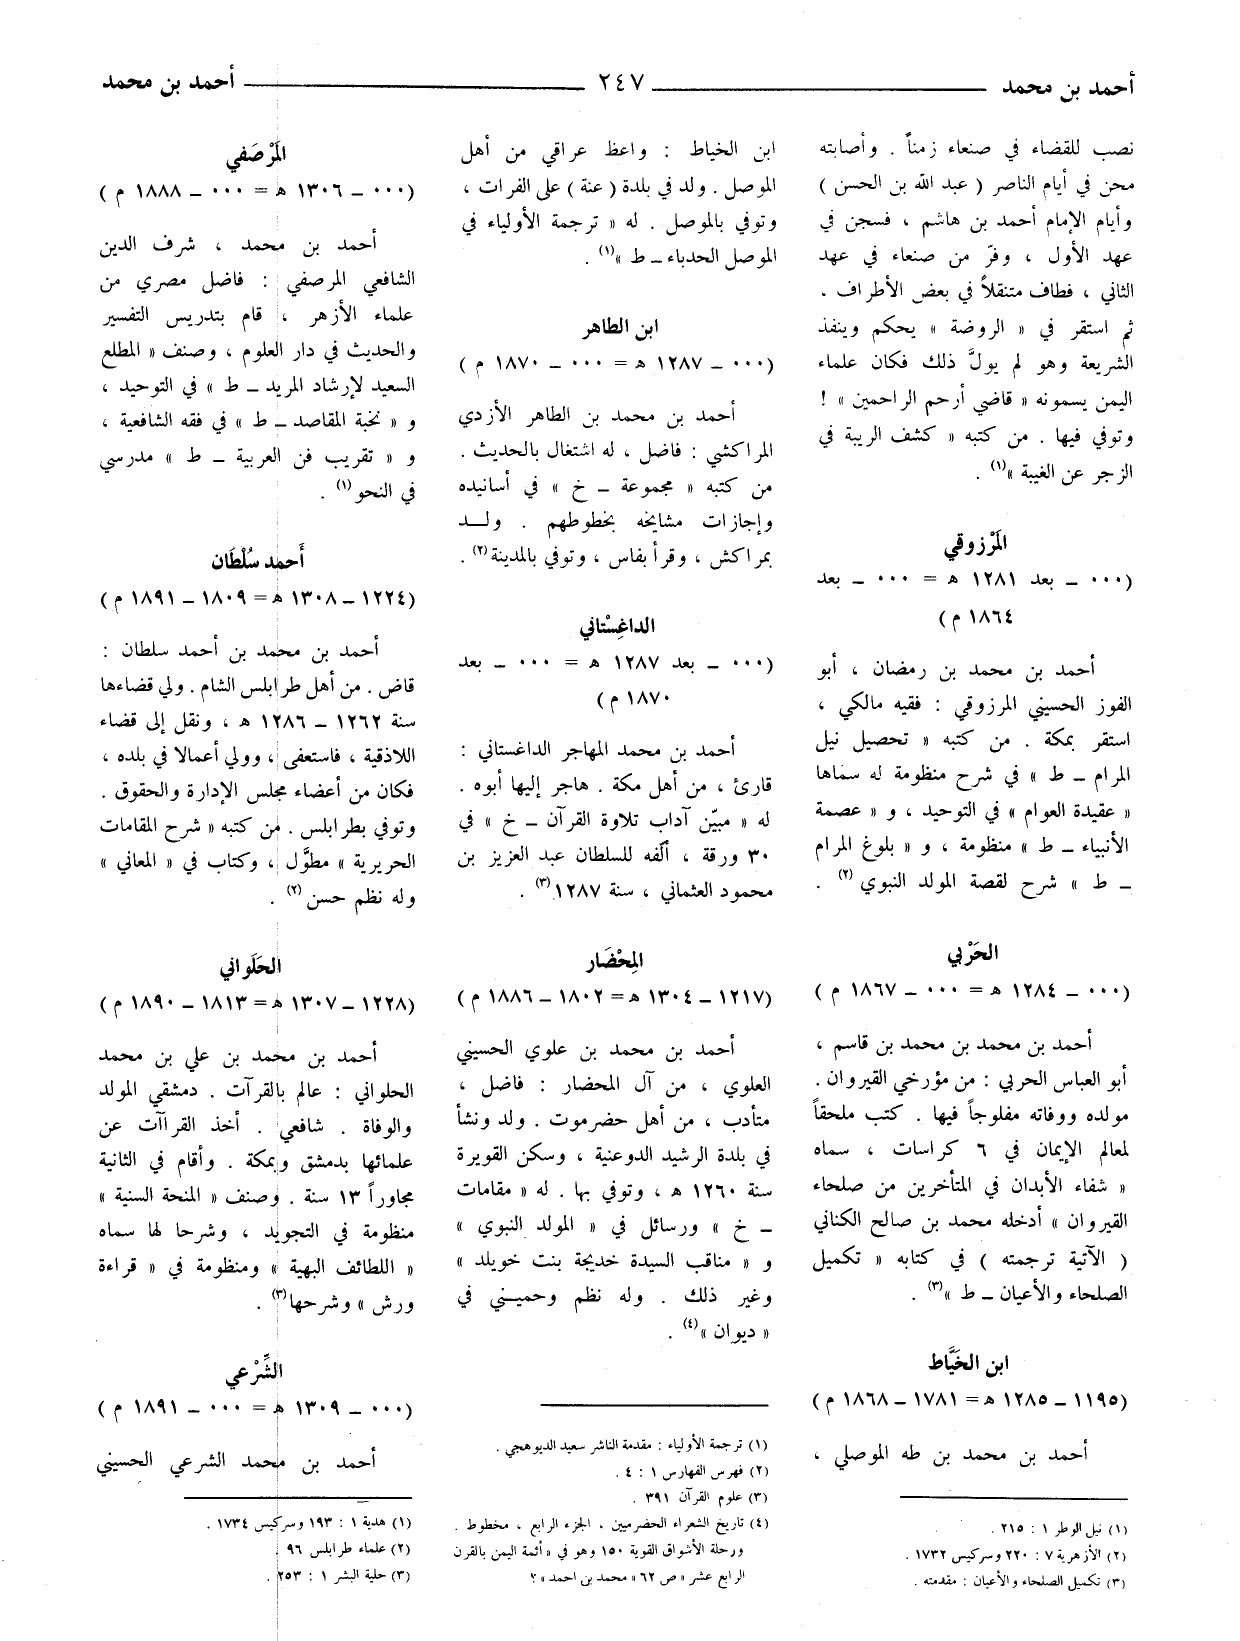 أحمد بن محمد ٢٤٧ أحمد بن محمد
نصب للقضاء في صنعاء زمناً . وأصابته
محن في أيام الناصر ( عبد الله بن الحسن )
وأيام الإمام أحمد بن هاشم ، فسجن في
عهد الأول ، وفرّ من صنعاء في عهد
الثاني ، فطاف متنقلاً في بعض الأطراف .
ثم استقر في « الروضة » يحكم وينفذ
الشريعة وهو لم يولَّ ذلك فكان علماء
اليمن يسمونه « قاضي أرحم الراحمين » !
وتوفي فيها . من كتبه « كشف الريبة في
الزجر عن الغيبة »(١) .
المَرْزوقي
(٠٠٠ ــ بعد ١٢٨١ هـ = ٠٠٠ ــ بعد
١٨٦٤ م)
أحمد بن محمد بن رمضان ، أبو
الفوز الحسيني المرزوقي : فقيه مالكي ،
استقر بمكة . من كتبه « تحصيل نيل
المرام ــ ط » في شرح منظومة له سماها
« عقيدة العوام » في التوحيد ، و « عصمة
الأنبياء ــ ط » منظومة ، و « بلوغ المرام
ــ ط » شرح لقصة المولد النبوي (٢) .
الحَرْبي
(٠٠٠ ــ ١٢٨٤ هـ = ٠٠٠ ــ ١٨٦٧ م)
أحمد بن محمد بن محمد بن قاسم ،
أبو العباس الحربي : من مؤرخي القيروان .
مولده ووفاته مفلوجاً فيها . كتب ملحقاً
لمعالم الإيمان في ٦ كراسات ، سماه
« شفاء الأبدان في المتأخرين من صلحاء
القيروان » أدخله محمد بن صالح الكناني
( الآتية ترجمته ) في كتابه « تكميل
الصلحاء والأعيان ــ ط »(٣) .
ابن الخَيَّاط
(١١٩٥ ــ ١٢٨٥ هـ = ١٧٨١ ــ ١٨٦٨ م)
أحمد بن محمد بن طه الموصلي ،
(١) نيل الوطر ١ : ٢١٥ .
(٢) الأزهرية ٧ : ٢٢٠ وسركيس ١٧٣٢ .
(٣) تكميل الصلحاء والأعيان : مقدمته .
ابن الخياط : واعظ عراقي من أهل
الموصل . ولد في بلدة ( عنة ) على الفرات ،
وتوفي بالموصل . له « ترجمة الأولياء في
الموصل الحدباء ــ ط »(١) .
ابن الطاهر
(٠٠٠ ــ ١٢٨٧ هـ = ٠٠٠ ــ ١٨٧٠ م )
أحمد بن محمد بن الطاهر الأزدي
المراكشي : فاضل ، له اشتغال بالحديث .
من كتبه « مجموعة ــ خ » في أسانيده
وإجازات مشايخه بخطوطهم . ولـد
بمراكش ، وقرأ بفاس ، وتوفي بالمدينة(٢) .
الداغِسْتاني
(٠٠٠ ــ بعد ١٢٨٧ هـ = ٠٠٠ ــ بعد
١٨٧٠ م)
أحمد بن محمد المهاجر الداغستاني :
قارئ ، من أهل مكة . هاجر إليها أبوه .
له « مبيّن آداب تلاوة القرآن ــ خ » في
٣٠ ورقة ، ألّفه للسلطان عبد العزيز بن
محمود العثماني ، سنة ١٢٨٧(٣) .
المِحْضَار
(١٢١٧ ــ ١٣٠٤ هـ = ١٨٠٢ ــ ١٨٨٦ م )
أحمد بن محمد بن علوي الحسيني
العلوي ، من آل المحضار : فاضل ،
متأدب ، من أهل حضرموت . ولد ونشأ
في بلدة الرشيد الدوعنية ، وسكن القويرة
سنة ١٢٦٠ هـ ، وتوفي بها . له « مقامات
ــ خ » ورسائل في « المولد النبوي »
و « مناقب السيدة خديجة بنت خويلد »
وغير ذلك . وله نظم وحميـني في
« ديوان »(٤) .
(١) ترجمة الأولياء : مقدمة الناشر سعيد الديوهجي .
(٢) فهرس الفهارس ١ : ٤ .
(٣) علوم القرآن ٣٩١ .
(٤) تاريخ الشعراء الحضرميين ، الجزء الرابع ، مخطوط .
ورحلة الأشواق القوية ١٥٠ وهو في « أئمة اليمن بالقرن
الرابع عشر » ص ٦٢ « محمد بن احمد » ؟
المَرْصَفي
(٠٠٠ ــ ١٣٠٦ هـ = ٠٠٠ ــ ١٨٨٨ م )
أحمد بن محمد ، شرف الدين
الشافعي المرصفي : فاضل مصري من
علماء الأزهر ، قام بتدريس التفسير
والحديث في دار العلوم ، وصنف « المطلع
السعيد لإرشاد المريد ــ ط » في التوحيد ،
و « نخبة المقاصد ــ ط » في فقه الشافعية ،
و « تقريب فن العربية ــ ط » مدرسي
في النحو(١) .
أَحمد سُلْطَان
(١٢٢٤ ــ ١٣٠٨ هـ = ١٨٠٩ ــ ١٨٩١ م )
أحمد بن محمد بن أحمد سلطان :
قاض . من أهل طرابلس الشام . ولي قضاءها
سنة ١٢٦٢ ــ ١٢٨٦ هـ ، ونقل إلى قضاء
اللاذقية ، فاستعفى ، وولي أعمالا في بلده ،
فكان من أعضاء مجلس الإدارة والحقوق .
وتوفي بطرابلس . من كتبه « شرح المقامات
الحريرية » مطوَّل ، وكتاب في « المعاني »
وله نظم حسن (٢) .
الحَلَواني
(١٢٢٨ ــ ١٣٠٧ هـ = ١٨١٣ ــ ١٨٩٠ م)
أحمد بن محمد بن علي بن محمد
الحلواني : عالم بالقرآت . دمشقي المولد
والوفاة . شافعي . أخذ القراآت عن
علمائها بدمشق وبمكة . وأقام في الثانية
مجاوراً ١٣ سنة . وصنف « المنحة السنية »
منظومة في التجويد ، وشرحا لها سماه
« اللطائف البهية » ومنظومة في « قراءة
ورش » وشرحها(٣) .
الشَّرْعي
(٠٠٠ ــ ١٣٠٩ هـ = ٠٠٠ ــ ١٨٩١ م )
أحمد بن محمد الشرعي الحسيني
(١) هدية ١ : ١٩٣ وسركيس ١٧٣٤ .
(٢) علماء طرابلس ٩٦ .
(٣) حلية البشر ١ : ٢٥٣ .